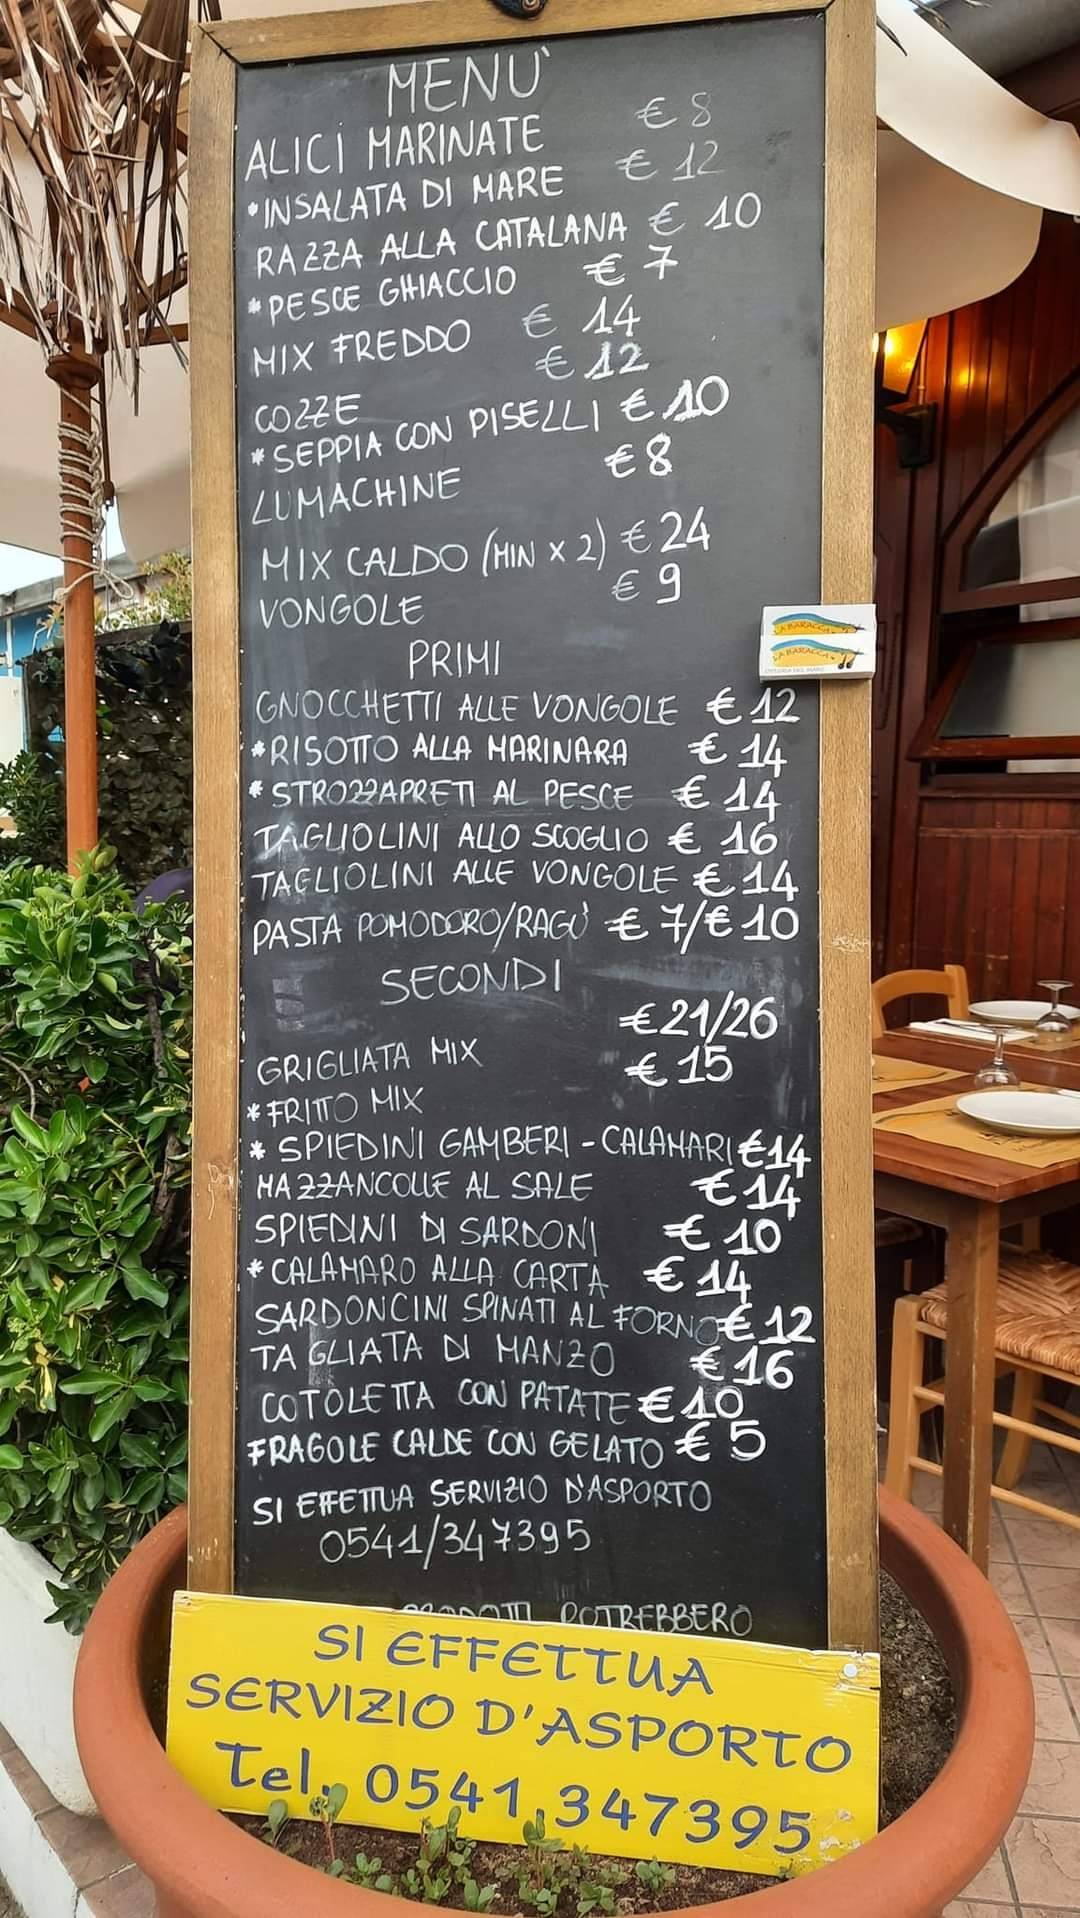 MENU'
ALICI MARINATE € 8
*INSALATA DI MARE € 12
RAZZA ALLA CATALANA € 10
*PESCE GHIACCIO € 7
MIX FREDDO € 14
COZZE € 12
*SEPPIA CON PISELLI € 10
LUMACHINE € 8
MIX CALDO (MIN X 2) € 24
VONGOLE € 9
LA BARACCA
LA BARACCA
OSTERIA DEL MARE
PRIMI
GNOCCHETTI ALLE VONGOLE € 12
*RISOTTO ALLA MARINARA € 14
*STROZZAPRETI AL PESCE € 14
TAGLIOLINI ALLO SCOGLIO € 16
TAGLIOLINI ALLE VONGOLE € 14
PASTA POMODORO/RAGÙ € 7/€ 10
SECONDI
GRIGLIATA MIX € 21/26
*FRITTO MIX € 15
* SPIEDINI GAMBERI - CALAMARI € 14
MAZZANCOLLE AL SALE € 14
SPIEDINI DI SARDONI € 10
*CALAMARO ALLA CARTA € 14
SARDONCINI SPINATI AL FORNO € 12
TAGLIATA DI MANZO € 16
COTOLETTA CON PATATE € 10
FRAGOLE CALDE CON GELATO € 5
SI EFFETTUA SERVIZIO D'ASPORTO
0541/347395
PRODOTTI POTREBBERO
SI EFFETTUA
SERVIZIO D'ASPORTO
Tel. 0541.347395